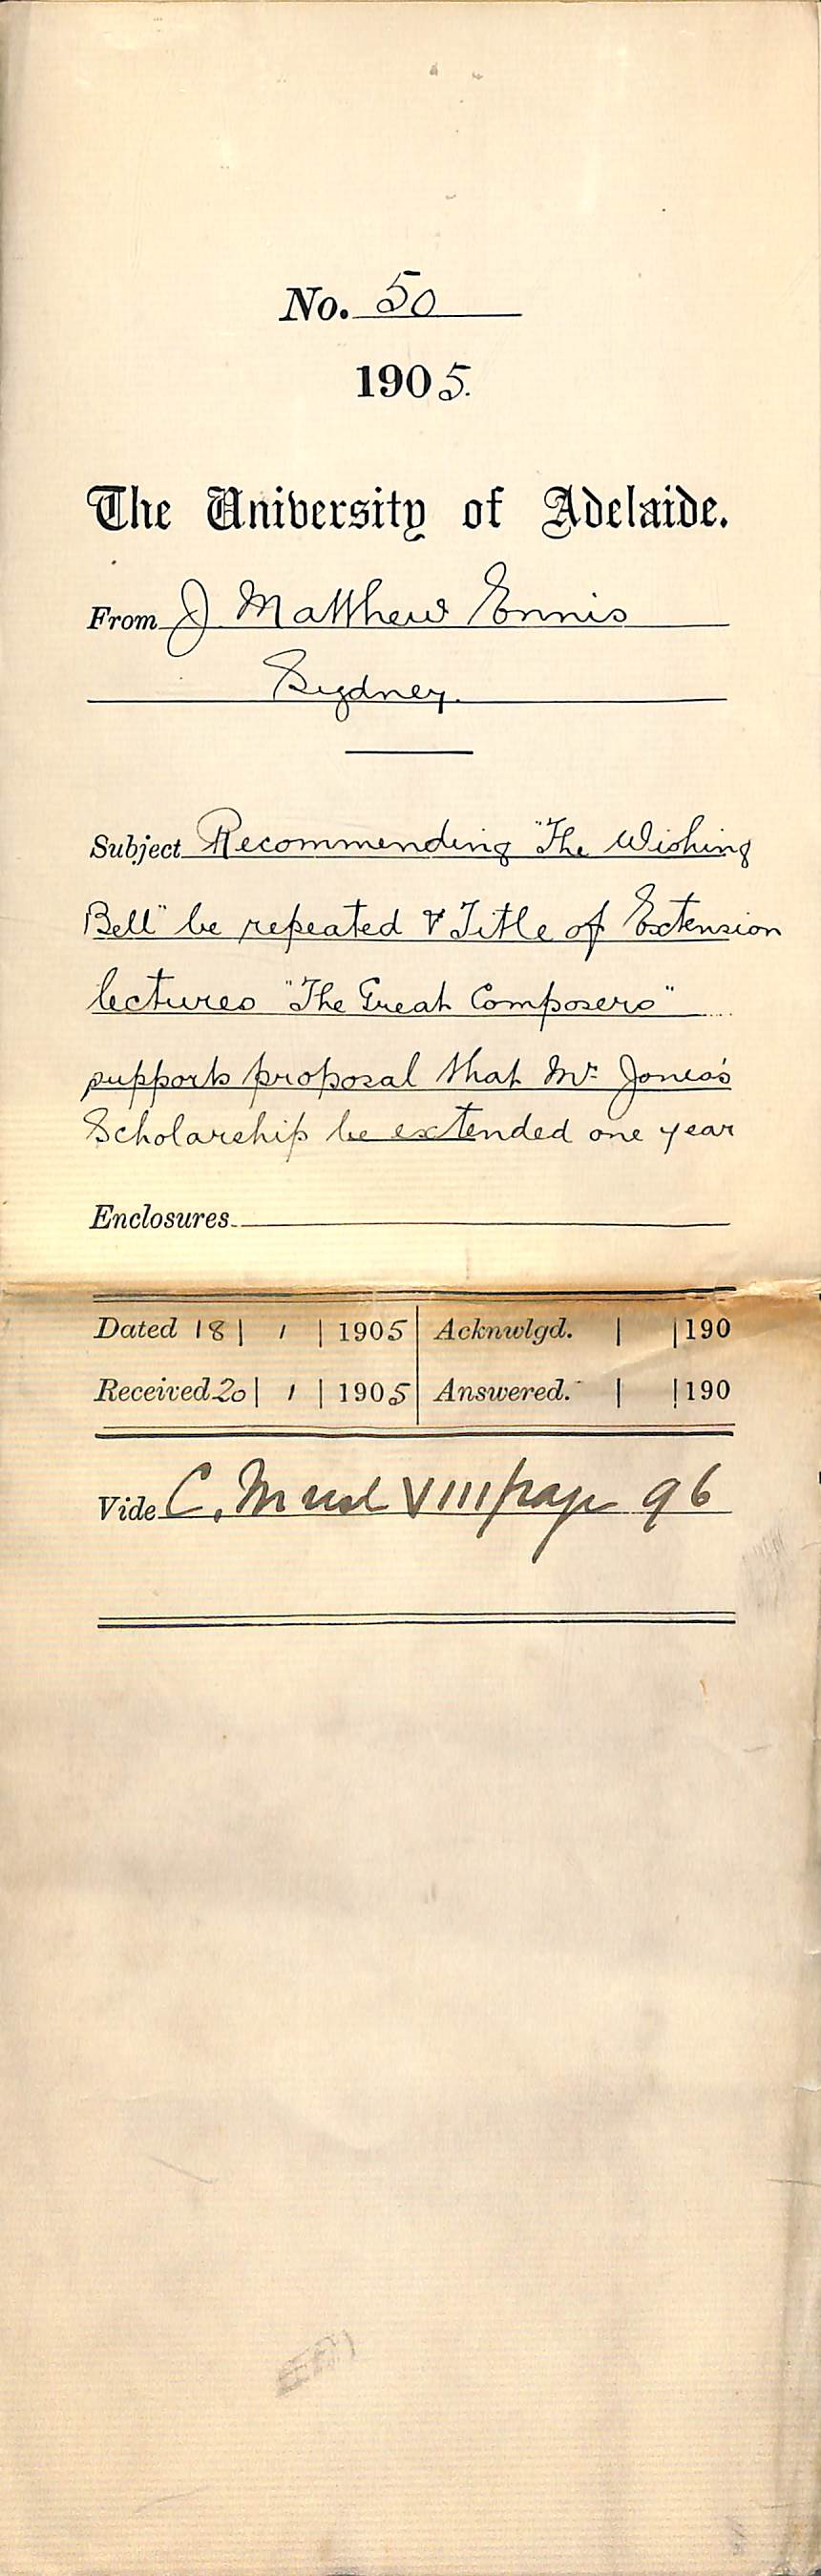 No. 50
1905.
The University of Adelaide.
From J Matthew Ennis
Sydney.
Subject Recommending "The Wishing
Bell" be repeated & Title of Extension
lectures "The Great Composers"
supports proposal that Mr. Jones's
Scholarship be extended one year
Enclosures
Dated 18 | 1 | 1905 | Acknwlgd. | | 190
Received 20 | 1 | 1905 | Answered. | | 190
Vide C. M VIII page 96